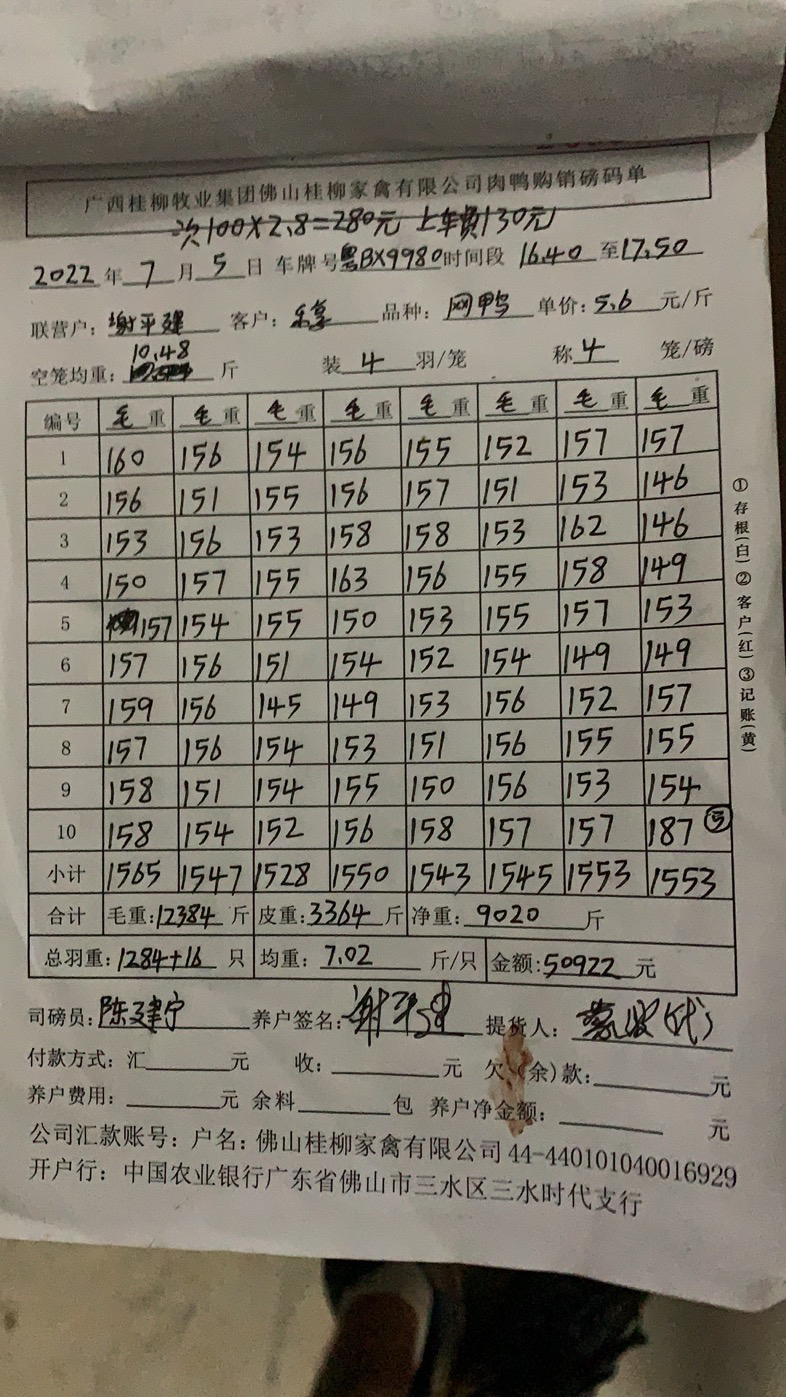 广西桂柳牧业集团佛山桂柳家禽有限公司肉鸭购销磅码单
次100×2.8=280元 上车费130元
2022年7月5日 车牌号粤BX9980时间段 16.40至17.50
联营户：谢平建 客户：乐享 品种：网鸭 单价：5.6元/斤
10.48
空笼均重： 斤 装4羽/笼 称4笼/磅
编号 毛重 毛重 毛重 毛重 毛重 毛重 毛重 毛重
1 160 156 154 156 155 152 157 157
2 156 151 155 156 157 151 153 146
3 153 156 153 158 158 153 162 146
4 150 157 155 163 156 155 158 149
5 157 154 155 150 153 155 157 153
6 157 156 151 154 152 154 149 149
7 159 156 145 149 153 156 152 157
8 157 156 154 153 151 156 155 155
9 158 151 154 155 150 156 153 154
10 158 154 152 156 158 157 157 187 ⑤
小计 1565 1547 1528 1550 1543 1545 1553 1553
合计 毛重:12384斤 皮重:3364斤 净重:9020斤
总羽重:1284+16只 均重:7.02斤/只 金额:50922元
司磅员:陈建宁 养户签名:谢平建 提货人:(代)
付款方式:汇 元 收: 元 欠(余)款: 元
养户费用: 元 余料 包 养户净金额: 元
公司汇款账号：户名：佛山桂柳家禽有限公司 44-440101040016929
开户行：中国农业银行广东省佛山市三水区三水时代支行
①存根(白)②客户(红)③记账(黄)